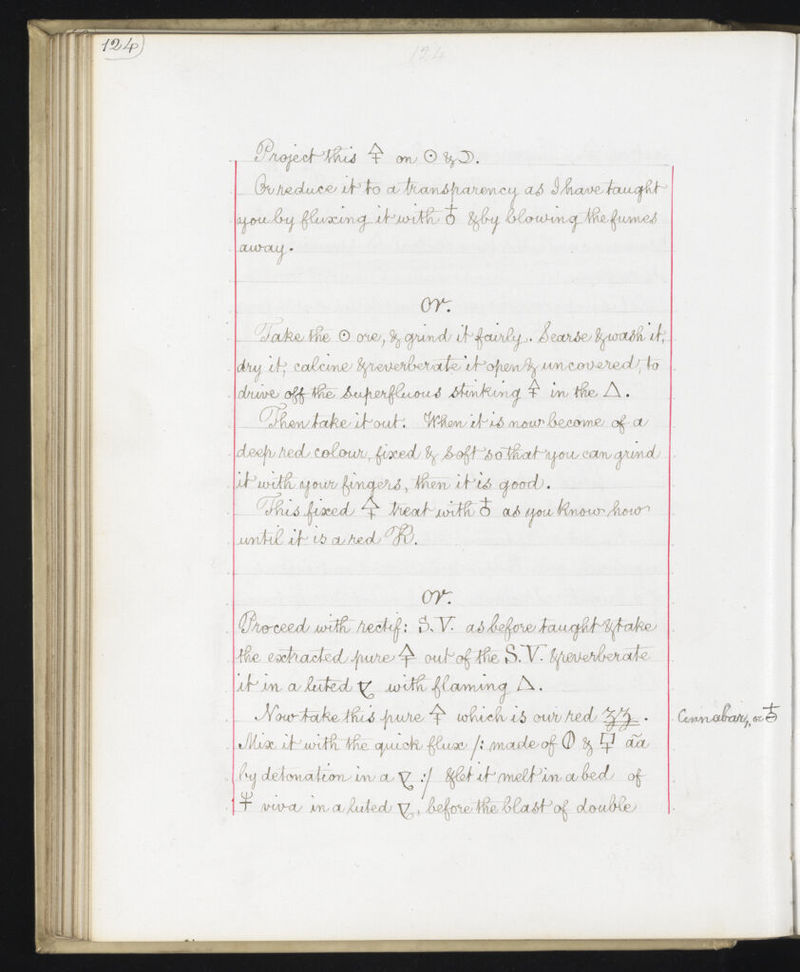 124
124
Project this 🜍 on ☉ & ☽.
Or reduce it to a transparency as I have taught
you by fluxing it with ♁ & by blowing the fumes
away.
or.
Take the ☉ ore, & grind it fairly. Searse & wash it,
dry it; calcine & reverberate it open & uncovered, to
drive off the superfluous stinking 🜍 in the △.
Then take it out. When it is now become of a
deep red colour, fixed & soft so that you can grind
it with your fingers, then it is good.
This fixed 🜍 treat with ♁ as you know how
until it is a red R.
or.
Proceed with rectif: S.V. as before taught & take
the extracted pure 🜍 out of the S.V. & reverberate
it in a luted 🜄 with flaming △.
Now take this pure 🜍 which is our red
Cinnabary, or ♁
Mix it with the quick flux /: made of 🜕 & 🜿 āā
by detonation in a :/ & let it melt in a bed of
☿ viva in a luted , before the blast of double